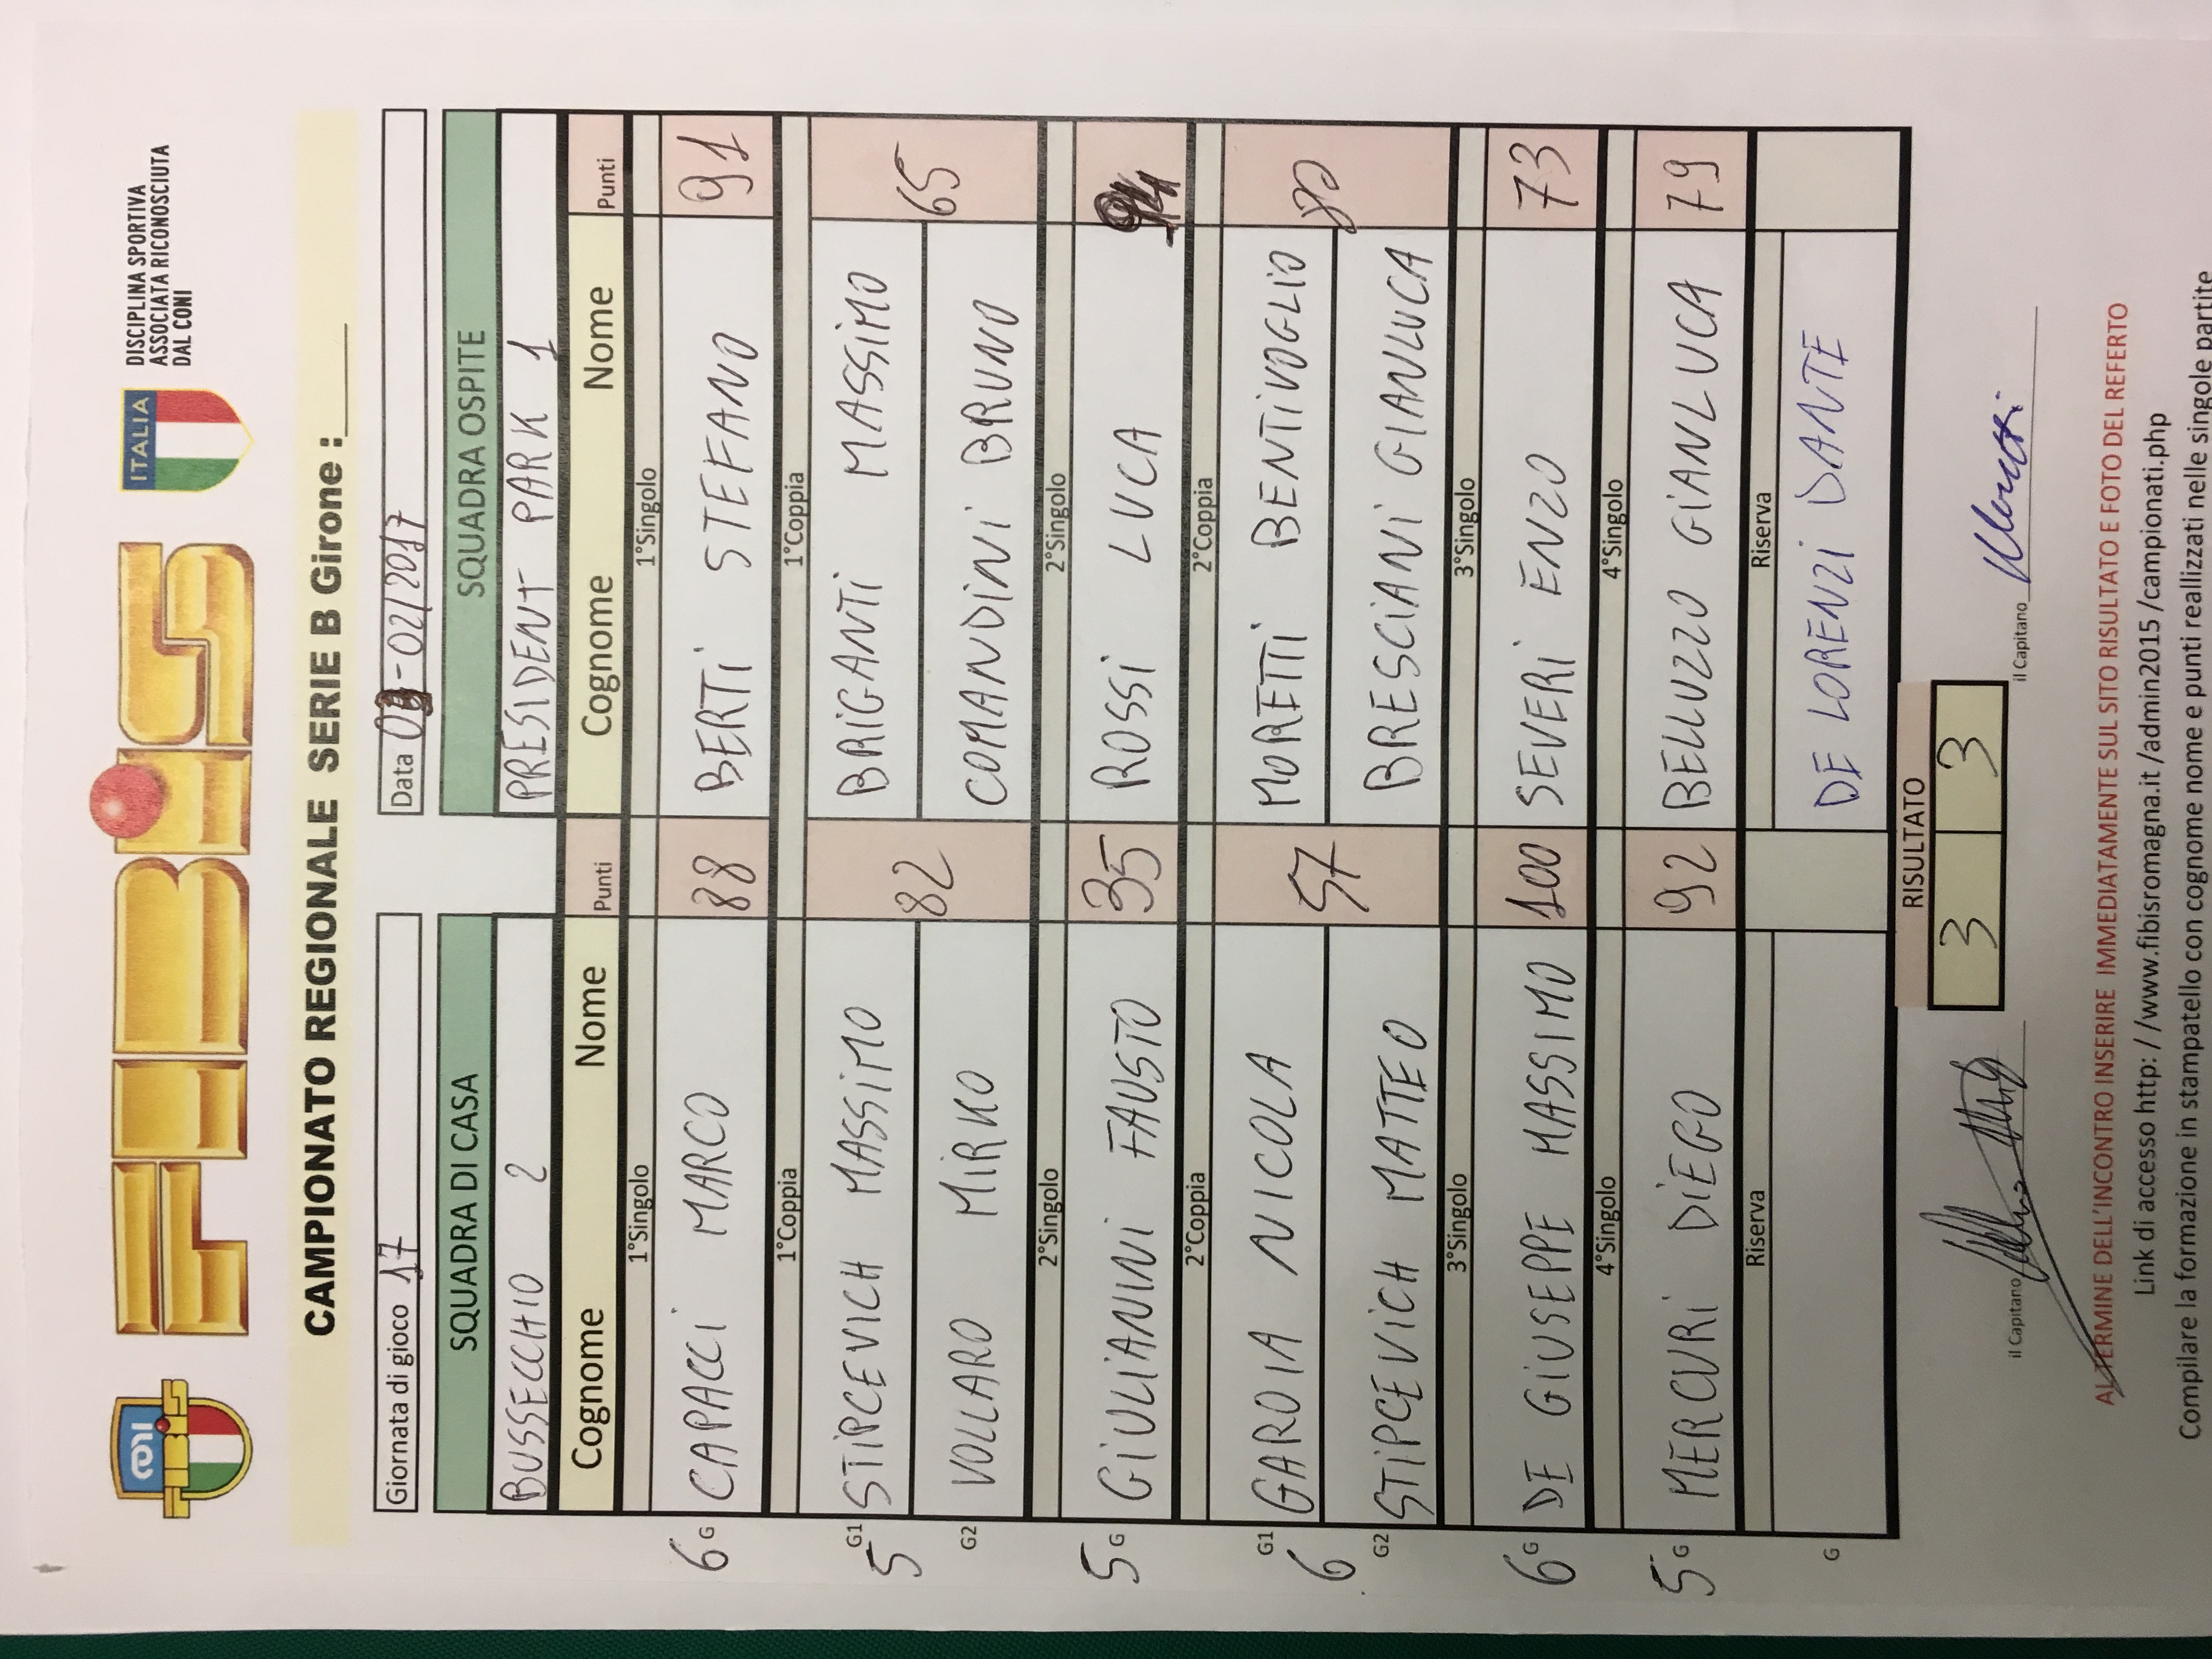 CONI
FIBiS
ITALIA
DISCIPLINA SPORTIVA
ASSOCIATA RICONOSCIUTA
DAL CONI
CAMPIONATO REGIONALE SERIE B Girone :
Giornata di gioco 17 Data -02/2017
SQUADRA DI CASA SQUADRA OSPITE
BUSSECCHIO 2 PRESIDENT PARK 1
Cognome Nome Punti Cognome Nome Punti
1°Singolo 1°Singolo
6 G CAPACCI MARCO 88 BERTI STEFANO 91
1°Coppia 1°Coppia
G1 STIPCEVICH MASSIMO BRIGANTI MASSIMO
5 82 65
G2 VOLLARO MIRKO COMANDINI BRUNO
2°Singolo 2°Singolo
5 G GIULIANINI FAUSTO 35 ROSSI LUCA
2°Coppia 2°Coppia
G1 GAROIA NICOLA MORETTI BENTIVOGLIO
6 57 80
G2 STIPCEVICH MATTEO BRESCIANI GIANLUCA
3°Singolo 3°Singolo
6 G DE GIUSEPPE MASSIMO 100 SEVERI ENZO 73
4°Singolo 4°Singolo
5 G MERCURI DIEGO 92 BELLUZZO GIANLUCA 79
Riserva Riserva
G DE LORENZI DANTE
RISULTATO
3 3
il Capitano il Capitano
AL TERMINE DELL'INCONTRO INSERIRE IMMEDIATAMENTE SUL SITO RISULTATO E FOTO DEL REFERTO
Link di accesso http: / /www.fibisromagna.it /admin2015 /campionati.php
Compilare la formazione in stampatello con cognome nome e punti reallizzati nelle singole partite